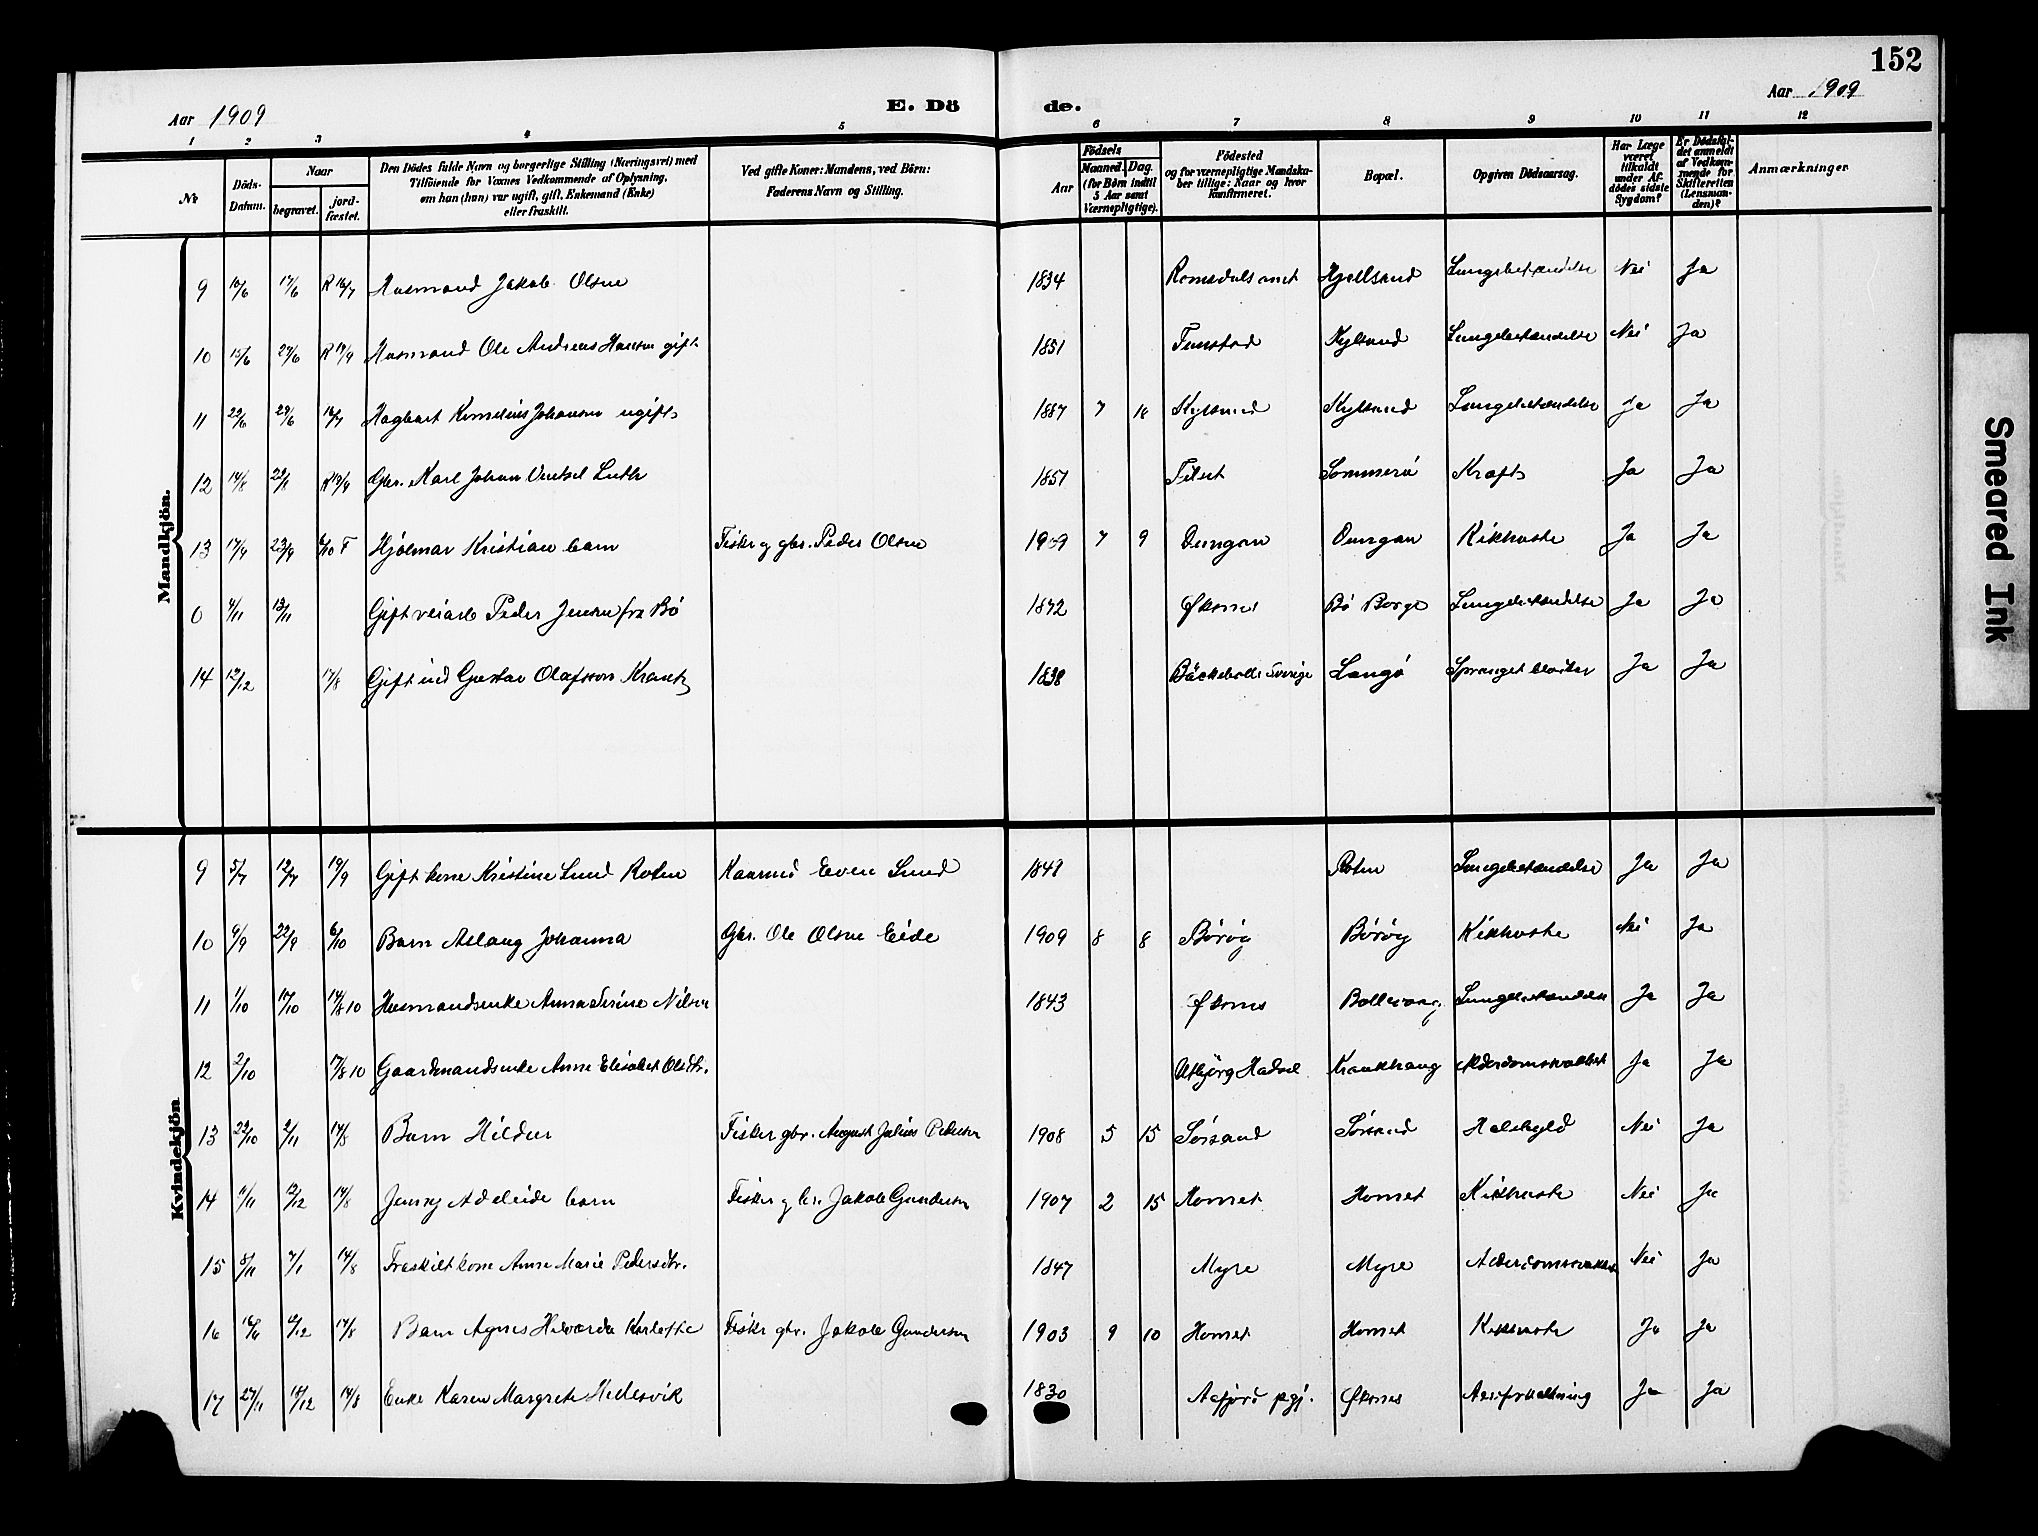 152
Aar 1909
E. Dö de.
Aar 1909
1 2 3 4 5 6 7 8 9 10 11 12
No
Döds-Datum.
Naar
begravet.
jord-fæstet.
Den Dödes fulde Navn og borgerlige Stilling (Næringsvei) med
Tilföiende for Voxnes Vedkommende af Oplysning,
om han (hun) var ugift, gift, Enkemand (Enke)
eller fraskilt.
Ved gifte Koner: Mandens, ved Börn:
Faderens Navn og Stilling.
Födsels
Aar
Maaned. Dag.
(for Børn indtil
5 Aar samt
Værnepligtige).
Födested
og for værnepligtige Mandska-
ber tillige: Naar og hvor
konfirmeret.
Bopæl.
Opgiven Dödsaarsag.
Har Læge
været
tilkaldt
under Af-
dödes sidste
Sygdom?
Er Dödsfal-
det anmeldt
af Vedkom-
mende for
Skifteretten
(Lensman-
den)?
Anmærkninger
Mandkjön.
9 Husmand Jakob Olsen 1834 Romsdals amt Lungebetændelse Nei Ja
10 15/6 Husmand Ole Andreas Hansen gift 1851 Lungebetændelse Nei Ja
11 Hagbart Kornelius Johansen ugift 1887 7 18 Lungebetændelse Ja Ja
12 14/8 22/8 Gbr. Karl Johan 1857 Sommerö Kræft Ja Ja
13 17/9 23/9 6/10 F Hjalmar Kristian barn Fisker og gbr. Peder Olsen 1909 7 9 Dungan Dungan Kikhoste Ja Ja
0 4/11 13/11 Gift Peder Jensen fra Bö 1842 Øksnes Bö Borge Lungebetændelse Ja Ja
14 12/12 17/8 Gift ind Gustav Olafsson Krantz 1838 Langö Ja Ja
Kvindekjön
9 5/7 12/7 19/9 Gift kone Kristine Lund Roten Even Lund 1848 Roten Lungebetændelse Ja Ja
10 9/9 22/9 6/10 Barn Aslaug Johanna Gbr. Ole Olsen Eide 1909 8 8 Börög Börög Kikhoste Nei Ja
11 1/10 17/10 14/8 10 Husmandsenke Anna Serine Nilsen 1843 Øksnes Lungebetændelse Ja Ja
12 2/10 17/8 10 Gaardmandsenke Anne Elisabet Olsdtr. Hadsel Alderdomssvakhet Ja Ja
13 22/10 2/11 14/8 Barn Hildur Fisker gbr. August Julius Pedersen 1908 5 15 Sörsand Sörsand Nei Ja
14 12/12 14/8 Jenny Adeleide barn Fisker og br. Jakob Gundersen 1907 2 15 Homset Homset Kikhoste Nei Ja
15 8/11 7/1 14/8 Fraskilt kone Anne Marie Pedersdtr. 1847 Myre Myre Alderdomssvakhet Nei Ja
16 14/8 Barn Agnes Fisker gbr. Jakob Gundersen 1903 9 10 Homset Homset Kikhoste Ja Ja
17 27/11 18/12 14/8 Enke Karen Margrete 1830 Aafjord pgj. Øksnes Ja Ja
Smeared Ink